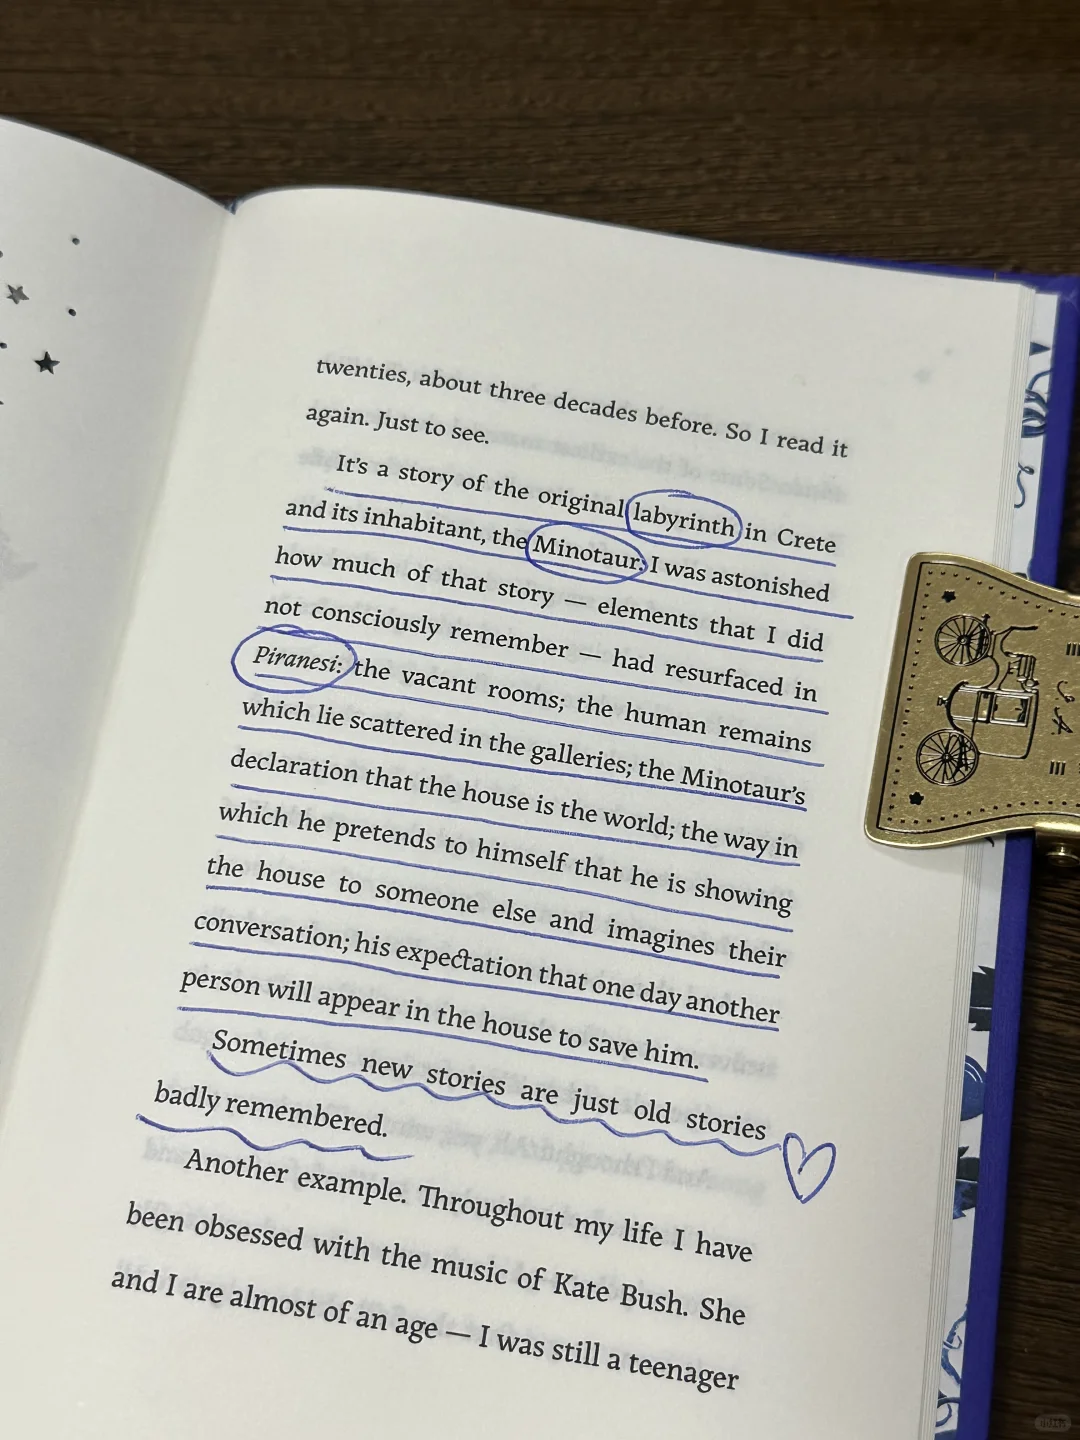 twenties, about three decades before. So I read it
again. Just to see.
It's a story of the original labyrinth in Crete
and its inhabitant, the Minotaur. I was astonished
how much of that story — elements that I did
not consciously remember — had resurfaced in
Piranesi: the vacant rooms; the human remains
which lie scattered in the galleries; the Minotaur's
declaration that the house is the world; the way in
which he pretends to himself that he is showing
the house to someone else and imagines their
conversation; his expectation that one day another
person will appear in the house to save him.
Sometimes new stories are just old stories
badly remembered.
Another example. Throughout my life I have
been obsessed with the music of Kate Bush. She
and I are almost of an age — I was still a teenager